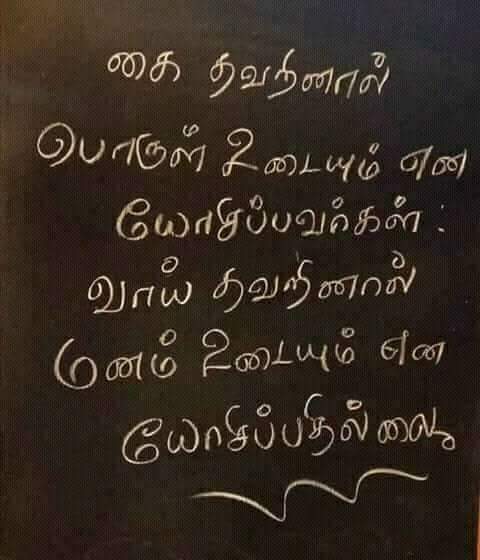 கை தவறினால்
பொருள் உடையும் என
யோசிப்பவர்கள் :
வாய் தவறினால்
மனம் உடையும் என
யோசிப்பதில்லை